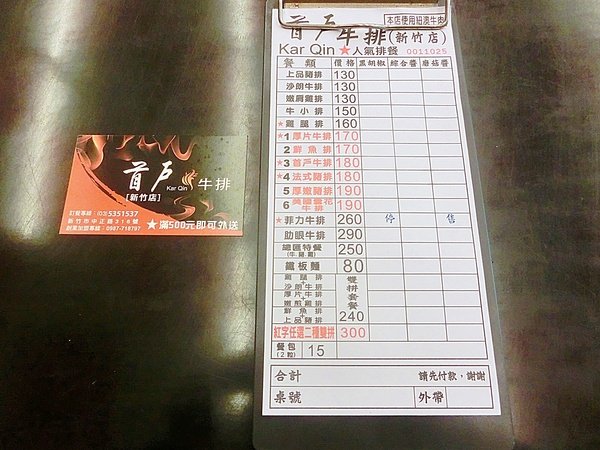 首戶
Kar Qin 牛排
[新竹店]
訂餐專線：(03)5351537
新竹市中正路316號
創業加盟專線：0987-718797
★滿500元即可外送
本店使用紐澳牛肉
首戶牛排(新竹店)
Kar Qin ★人氣排餐 0011025
餐類 價格 黑胡椒 綜合醬 磨菇醬
上品豬排 130
沙朗牛排 130
嫩肩雞排 130
牛小排 150
★雞腿排 160
★1 厚片牛排 170
2 鮮魚排 170
★3 首戶牛排 180
★4 法式豬排 180
5 厚嫩豬排 190
6 美國雪花牛排 190
★菲力牛排 260 停售
肋眼牛排 290
總匯特餐 250
(牛.豬.雞)
鐵板麵 80
雞腿排
+
沙朗牛排
厚片牛排
+
嫩煎雞排
鮮魚排
+
上品豬排
雙拼套餐 240
紅字任選二種雙拼 300
餐包 15
(2粒)
合計 請先付款，謝謝
桌號 外帶